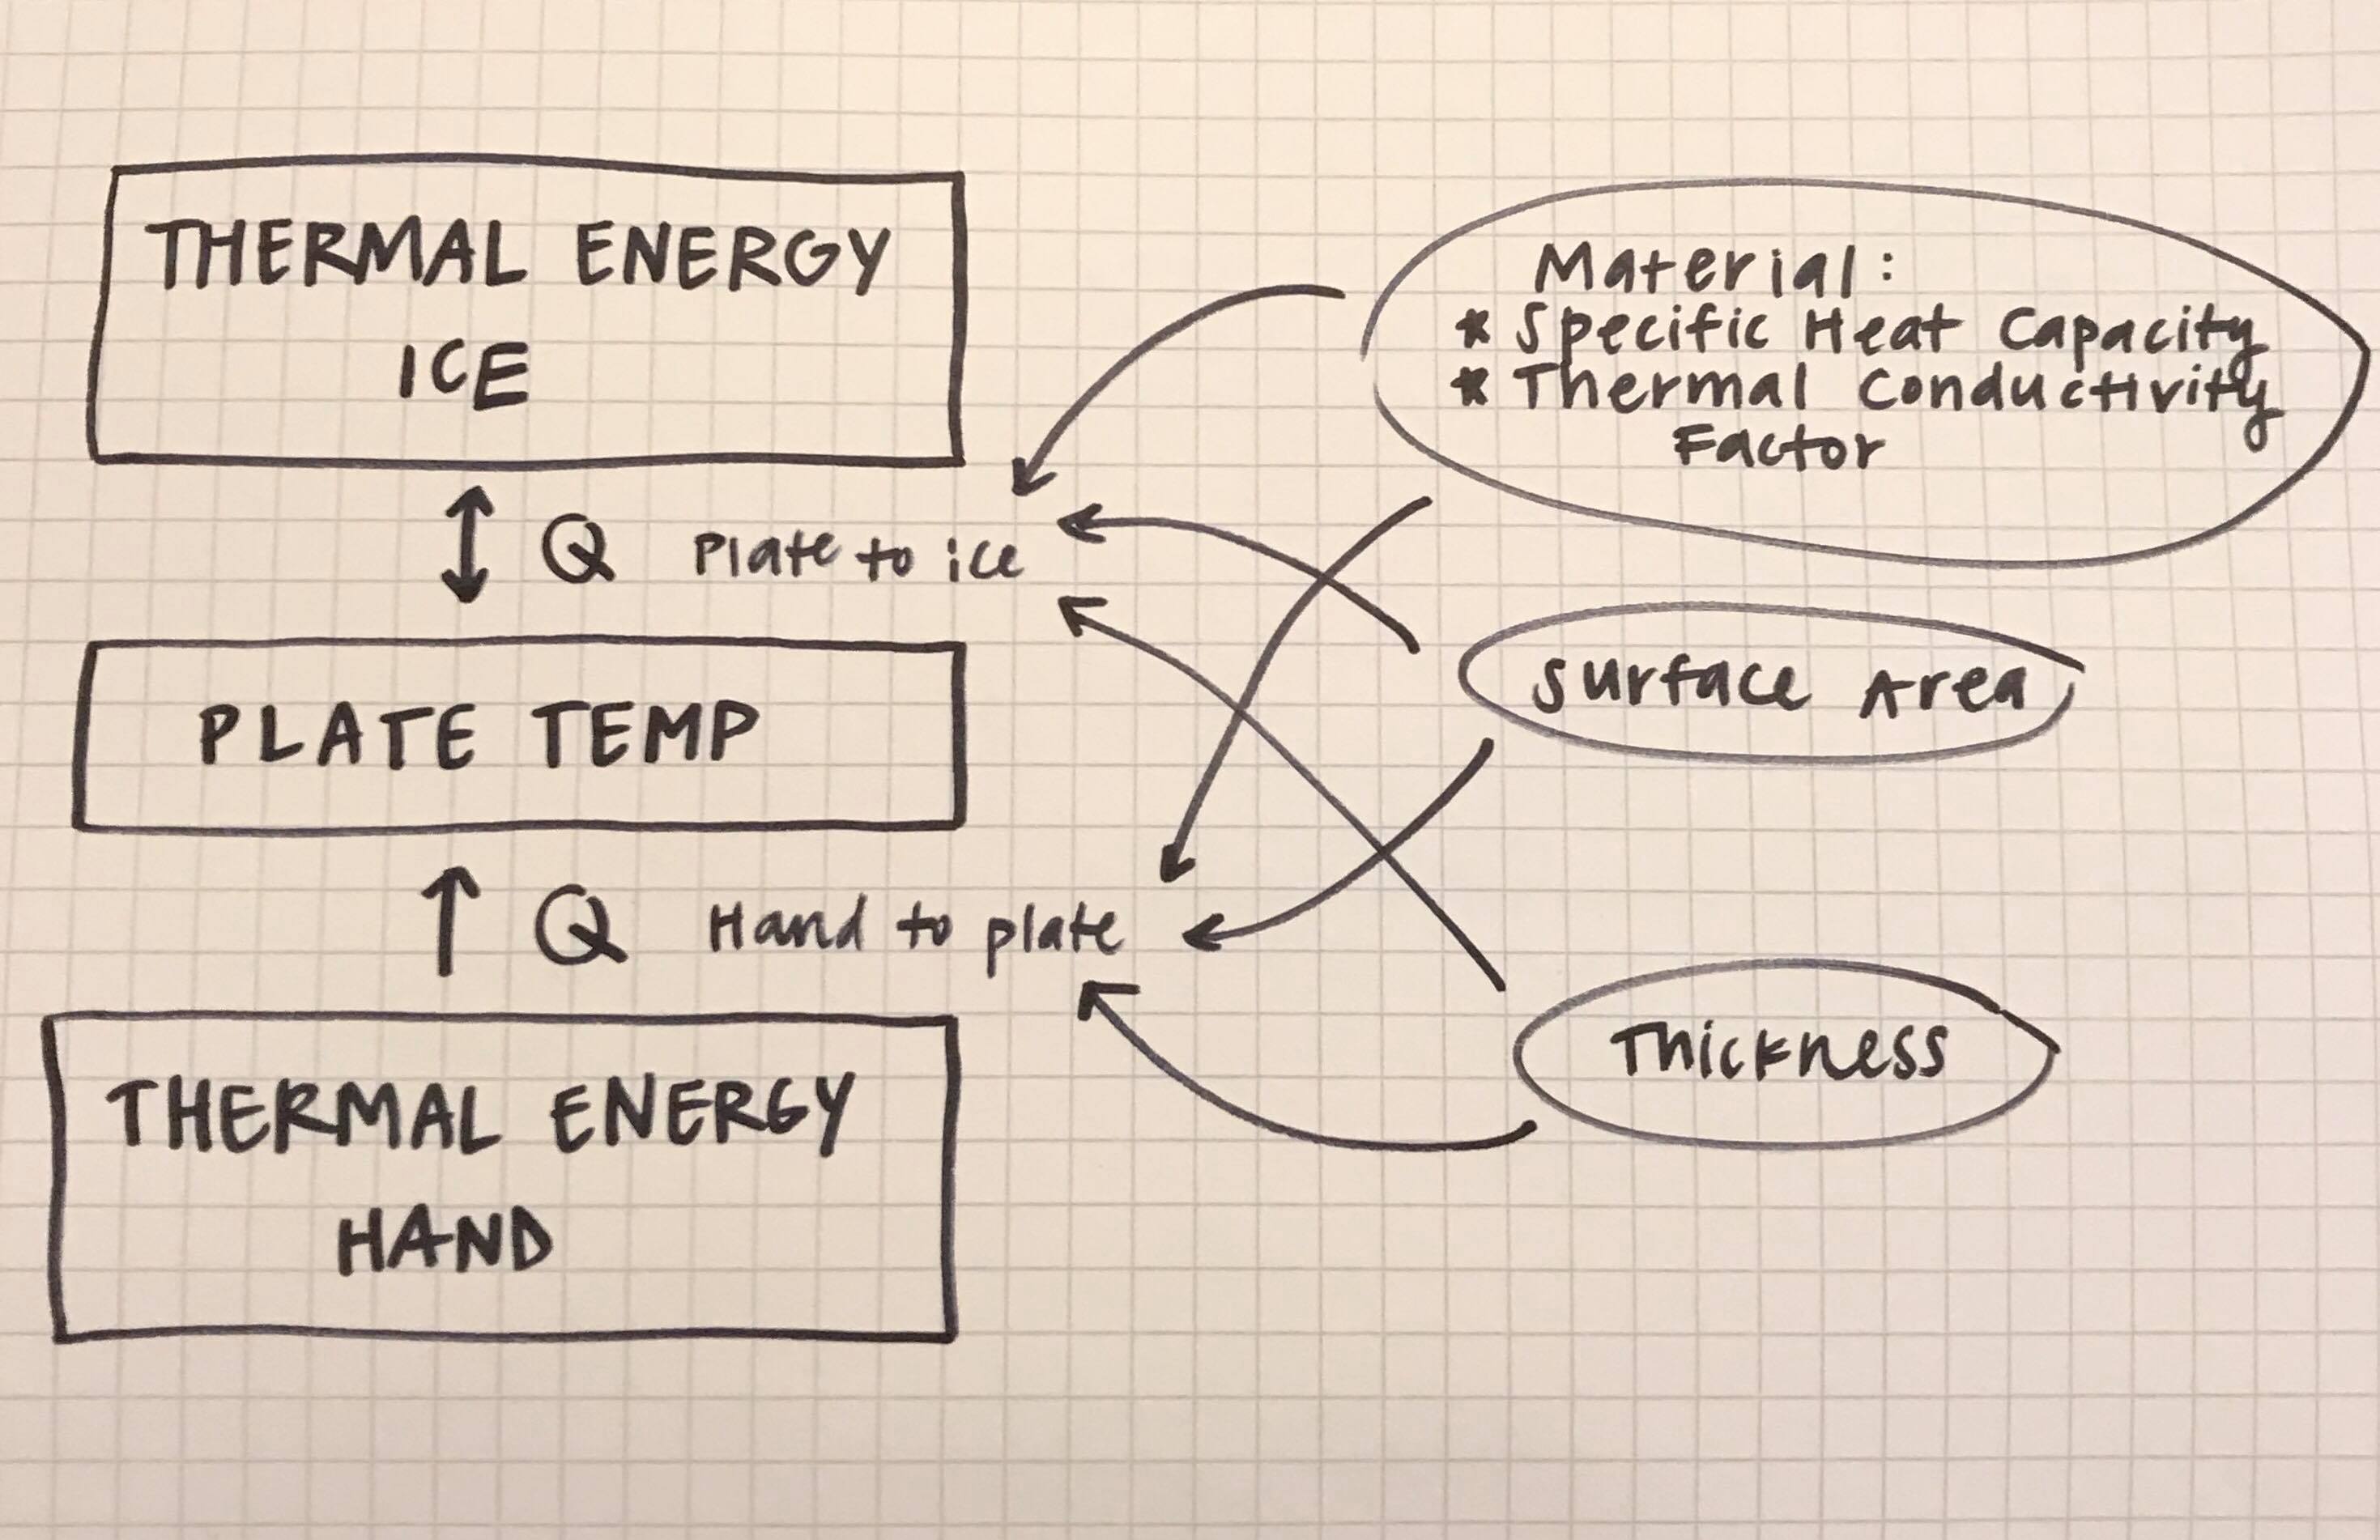 THERMAL ENERGY
ICE
Q Plate to ice
PLATE TEMP
Q Hand to plate
THERMAL ENERGY
HAND
Material:
* Specific Heat Capacity
* Thermal Conductivity
Factor
Surface Area
Thickness